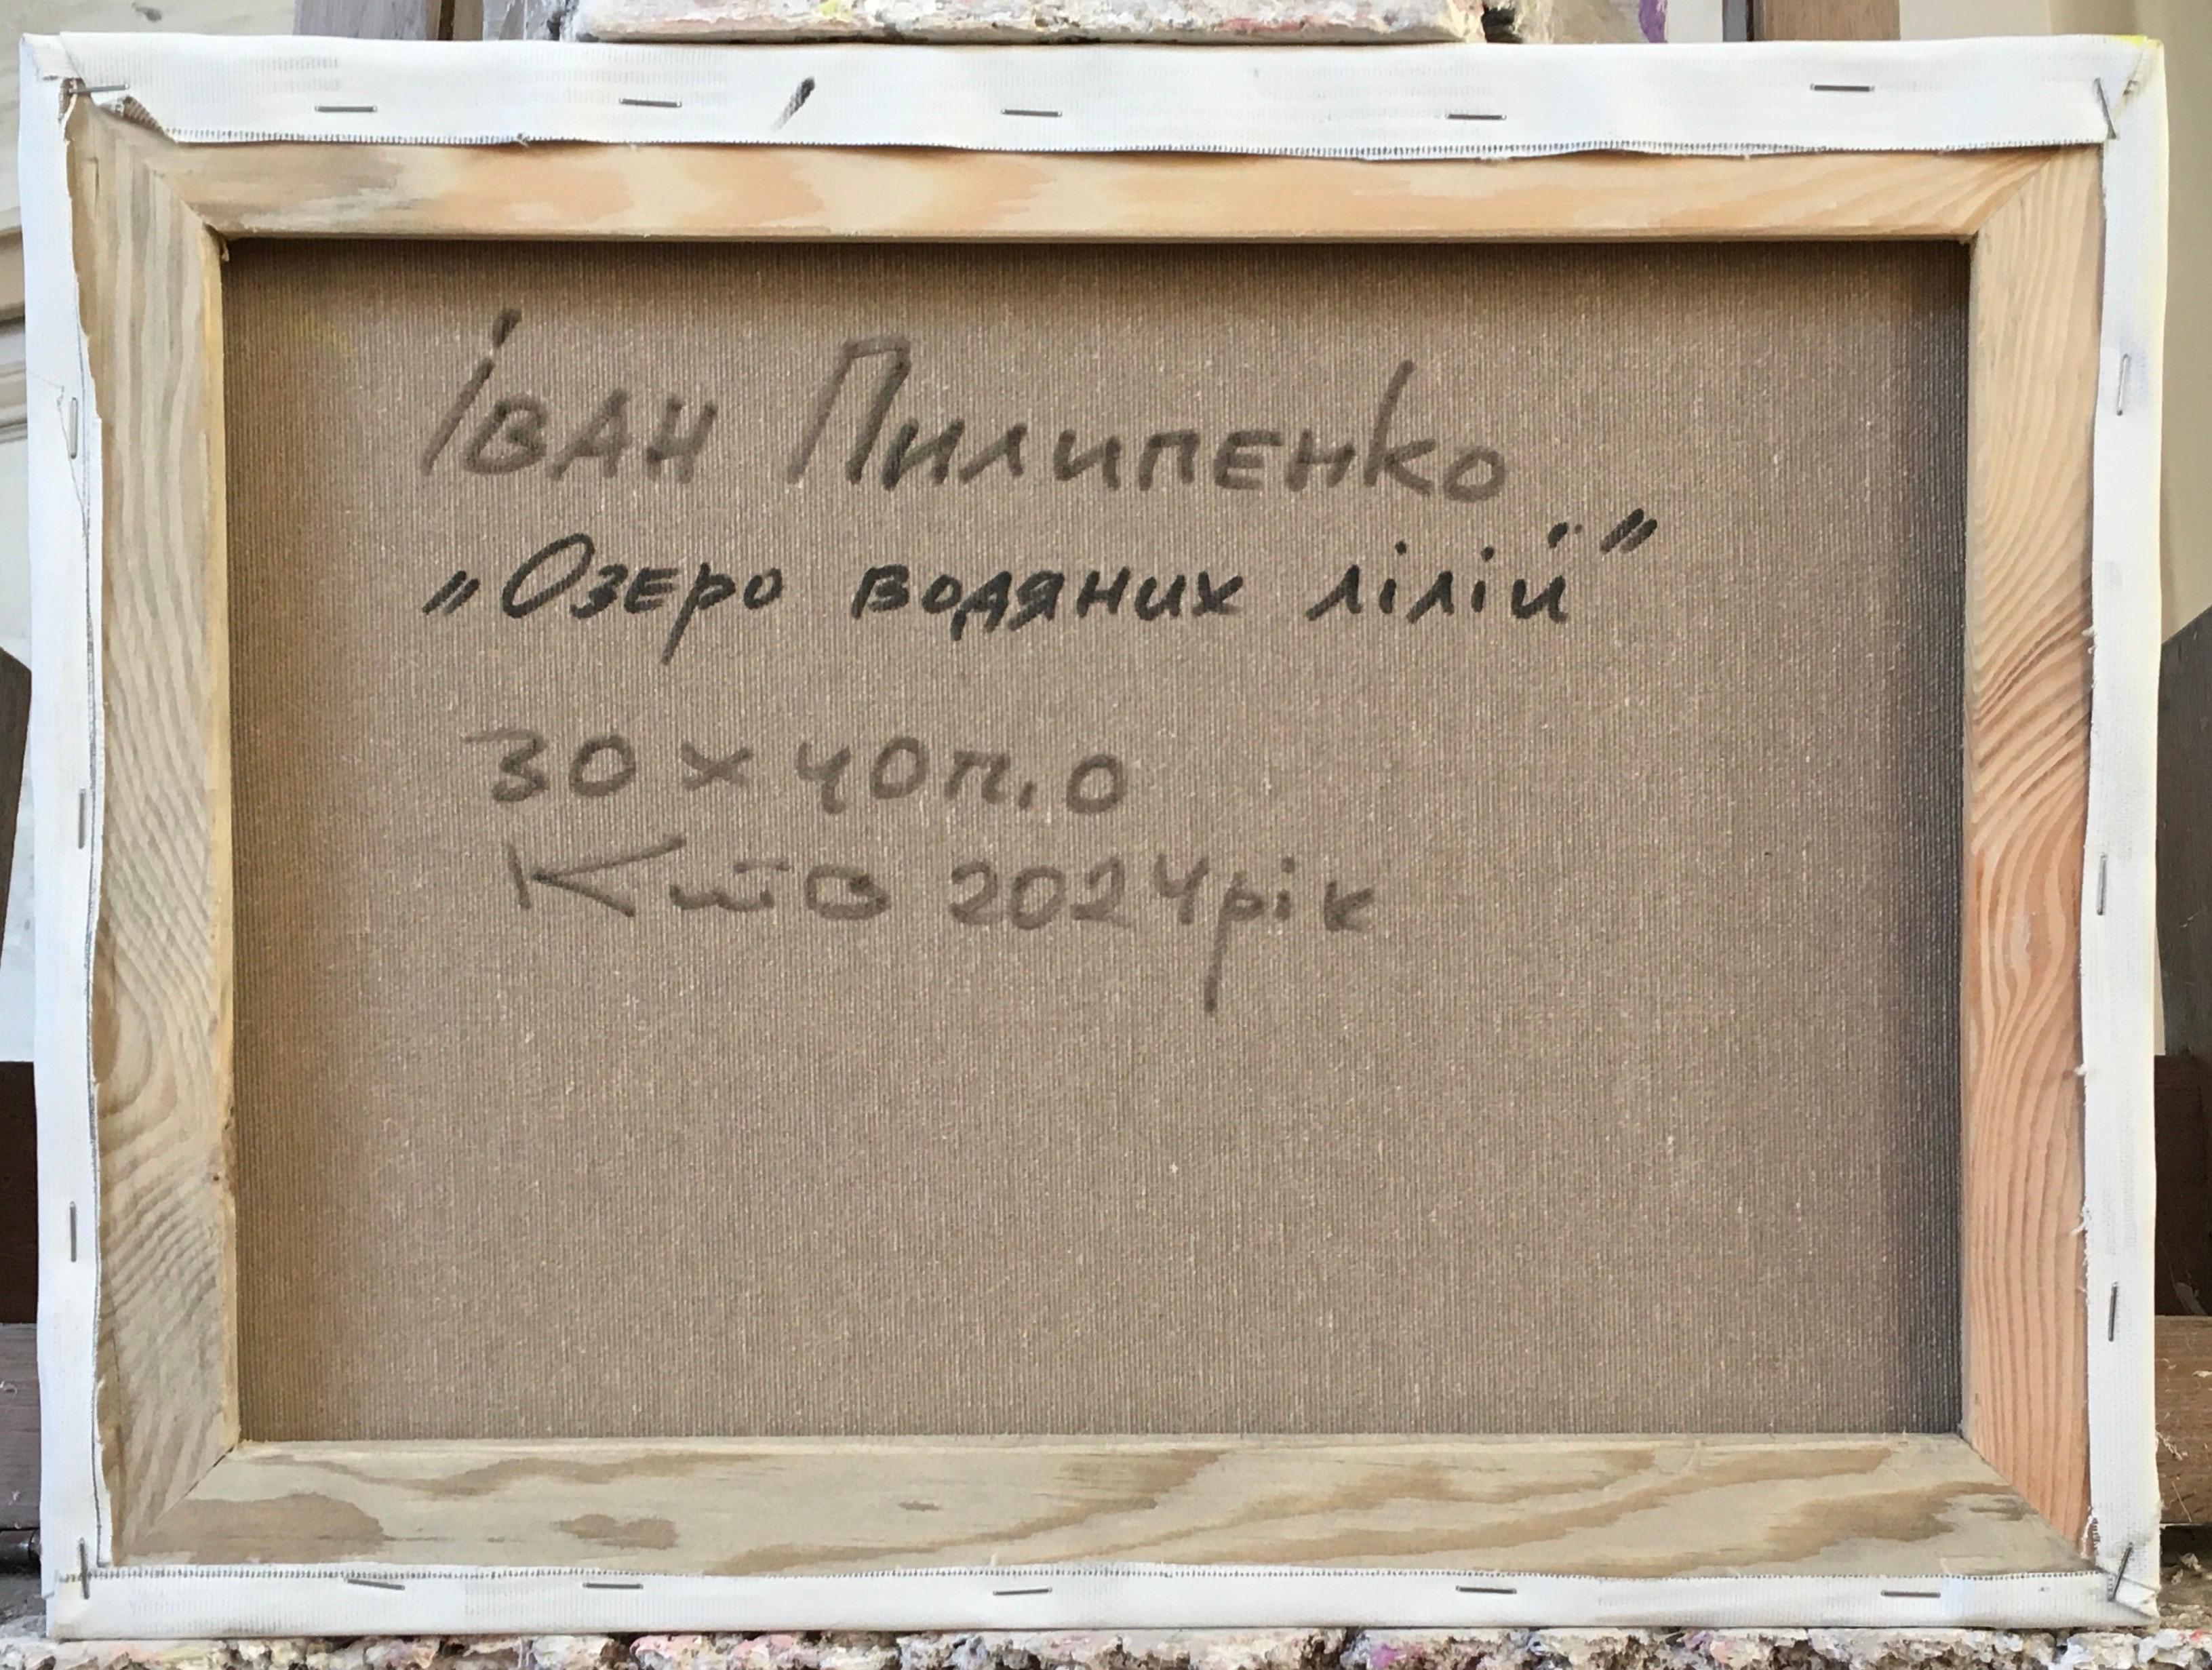 Іван Пилипенко
„Озеро водяних лілій”
30 х 40 п.о
Київ 2024 рік